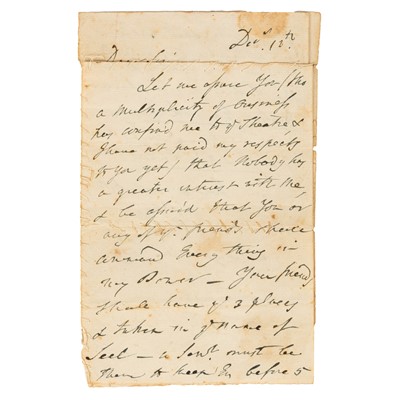 Decr. 12th.
Dear Sir
Let me assure You (tho
a Multiplicity of business
has confin'd me to ye Theatre, &
I have not paid my respects
to You yet) that Nobody has
a greater interest with Me,
& be assur'd that You or
any of yr. friends shall
command Every thing in
my Power — Your friend
shall have ye 3 places
& taken in ye Name of
Seel — a Servt. must be
there to keep 'Em before 5